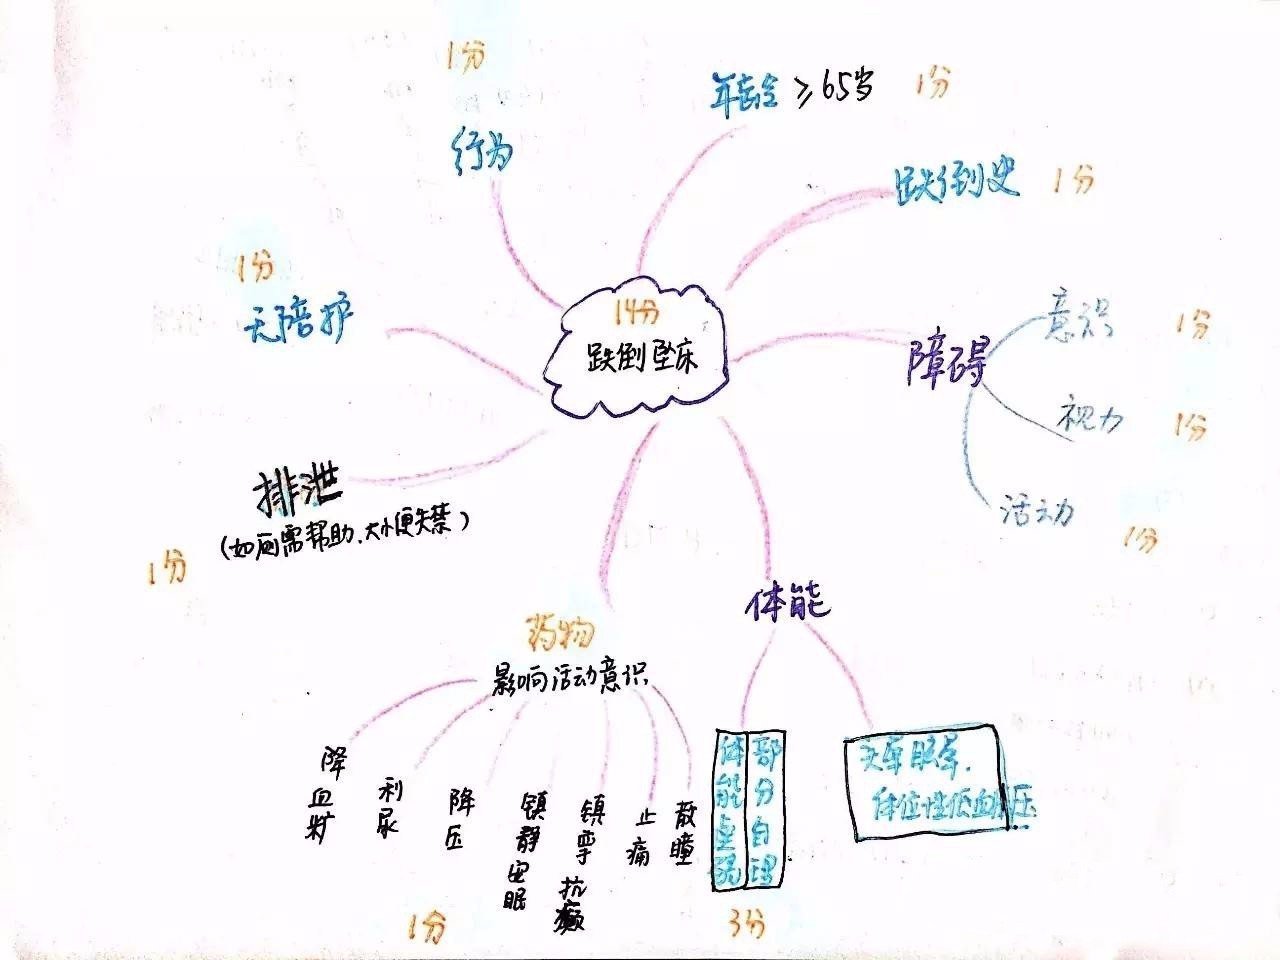 14分
跌倒坠床
年龄≥65岁 1分
跌倒史 1分
障碍
意识 1分
视力 1分
活动 1分
体能
体能虚弱
部分自理
头晕眼晕.
体位性低血压
3分
药物
影响活动意识
降血糖
利尿
降压
镇静安眠
镇挛抗癫
止痛
散瞳
1分
排泄
(如厕需帮助.大小便失禁)
1分
无陪护
1分
行为
1分